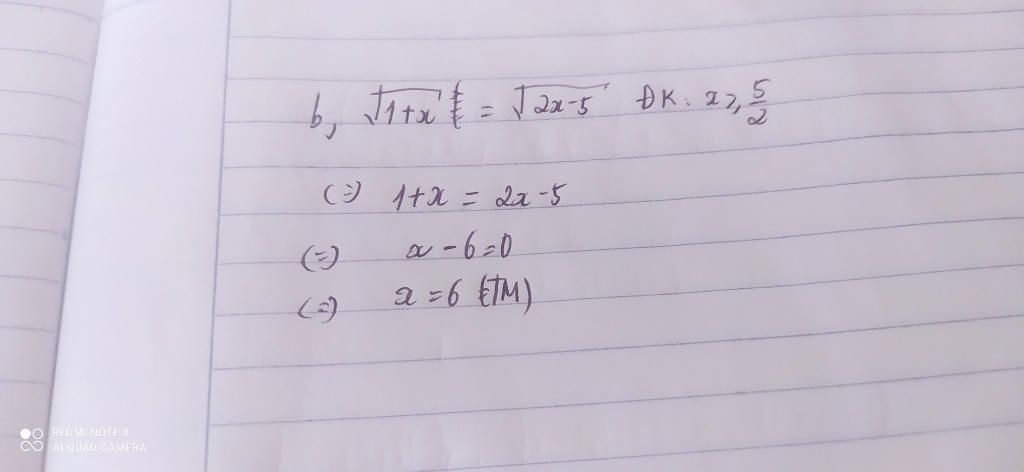 b, √1+x = √2x-5 ĐK: x ≥ 5/2
(=) 1+x = 2x-5
(=) x - 6 = 0
(=) x = 6 (TM)
REDMI NOTE 8
AI QUAD CAMERA